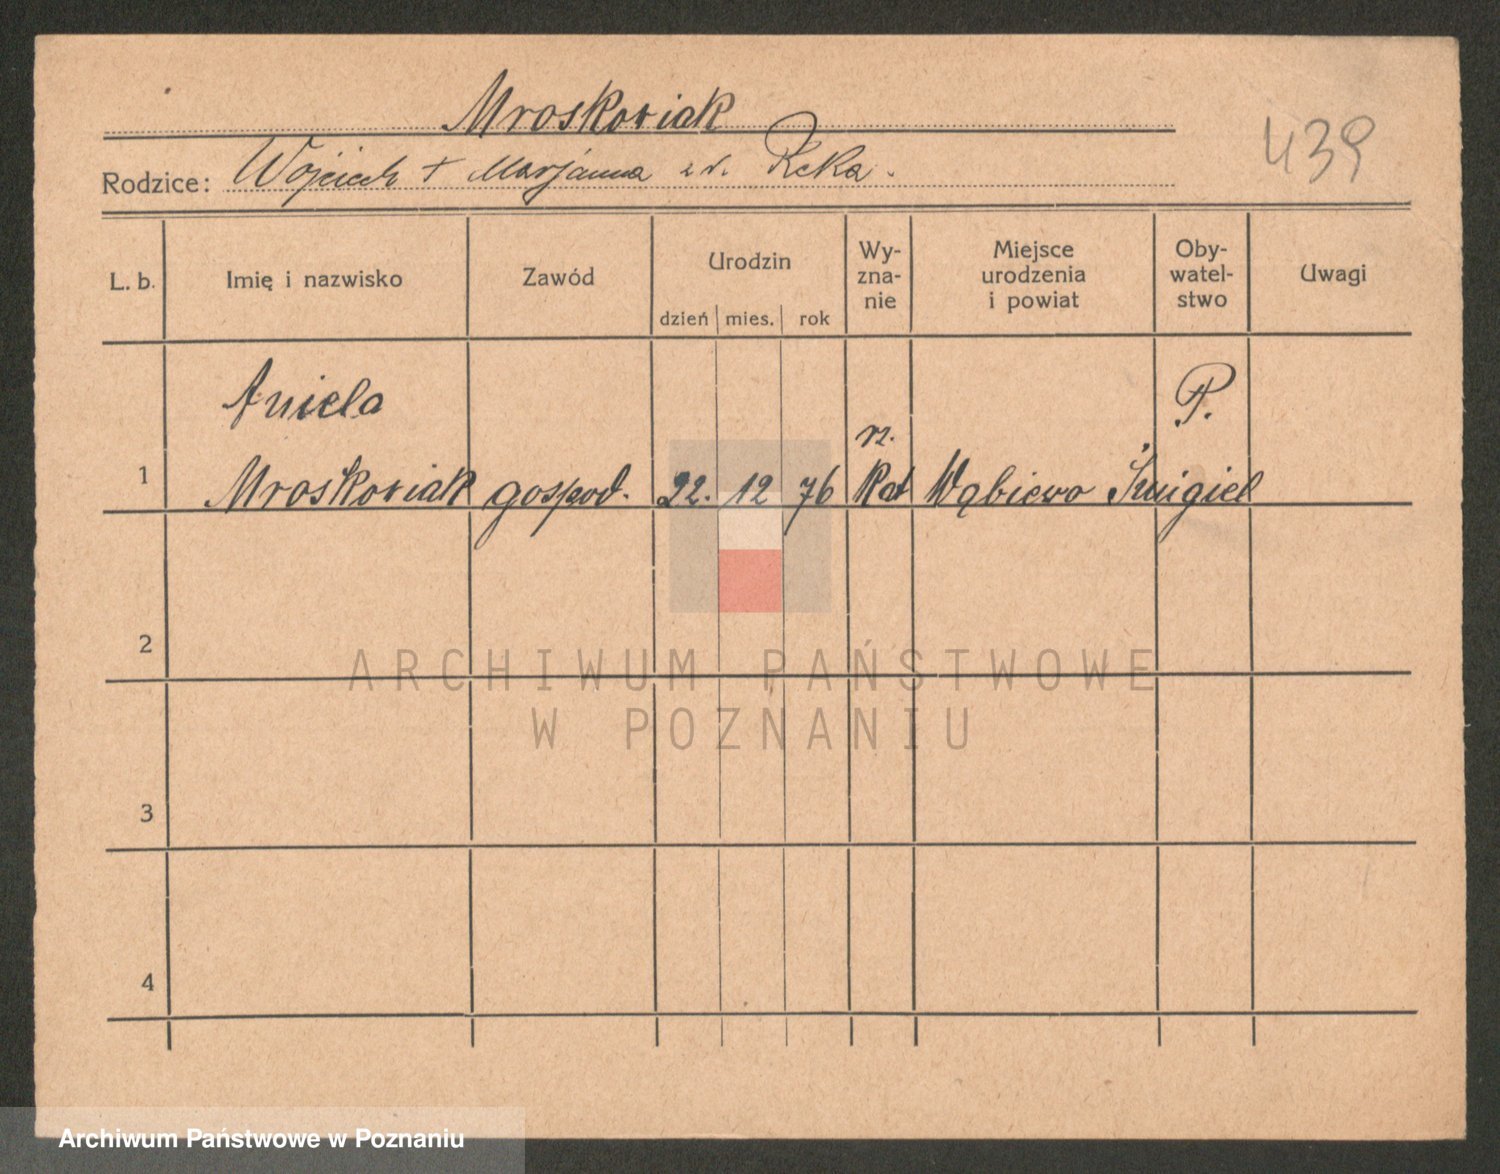 Mroskowiak
439
Rodzice: Wojciech + Marjanna z d. Reka.
L. b. Imię i nazwisko Zawód Urodzin dzień mies. rok Wy-zna-nie Miejsce urodzenia i powiat Oby-watel-stwo Uwagi
Aniela P.
rz.
1 Mroskowiak gospod. 22. 12 76 Kat Śmigiel
2
ARCHIWUM PAŃSTWOWE
W POZNANIU
3
4
Archiwum Państwowe w Poznaniu